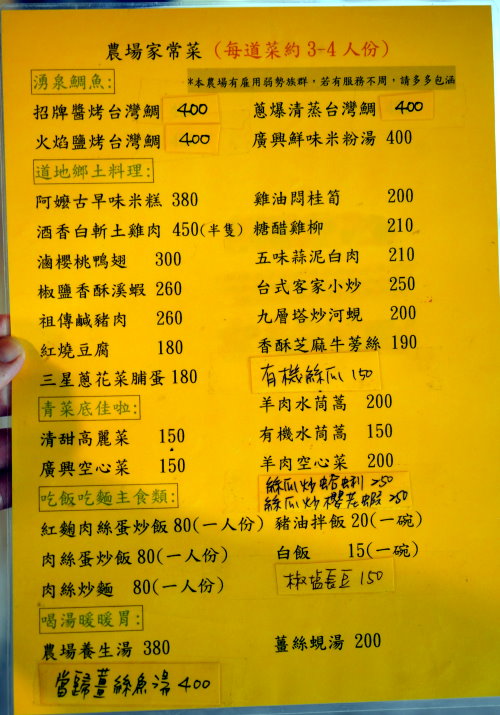 農場家常菜(每道菜約3-4人份)
湧泉鯛魚:
*本農場有雇用弱勢族群,若有服務不周,請多多包涵
招牌醬烤台灣鯛 400 蔥爆清蒸台灣鯛 400
火焰鹽烤台灣鯛 400 廣興鮮味米粉湯 400
道地鄉土料理:
阿嬤古早味米糕 380 雞油悶桂筍 200
酒香白斬土雞肉 450(半隻) 糖醋雞柳 210
滷櫻桃鴨翅 300 五味蒜泥白肉 210
椒鹽香酥溪蝦 260 台式客家小炒 250
祖傳鹹豬肉 260 九層塔炒河蜆 200
紅燒豆腐 180 香酥芝麻牛蒡絲 190
三星蔥花菜脯蛋 180 有機絲瓜 150
青菜底佳啦: 羊肉水茼蒿 200
清甜高麗菜 150 有機水茼蒿 150
廣興空心菜 150 羊肉空心菜 200
絲瓜炒蛤蜊 250
絲瓜炒櫻花蝦 250
吃飯吃麵主食類:
紅麴肉絲蛋炒飯 80(一人份) 豬油拌飯 20(一碗)
肉絲蛋炒飯 80(一人份) 白飯 15(一碗)
肉絲炒麵 80(一人份) 椒鹽長豆 150
喝湯暖暖胃:
農場養生湯 380 薑絲蜆湯 200
當歸薑絲魚湯 400